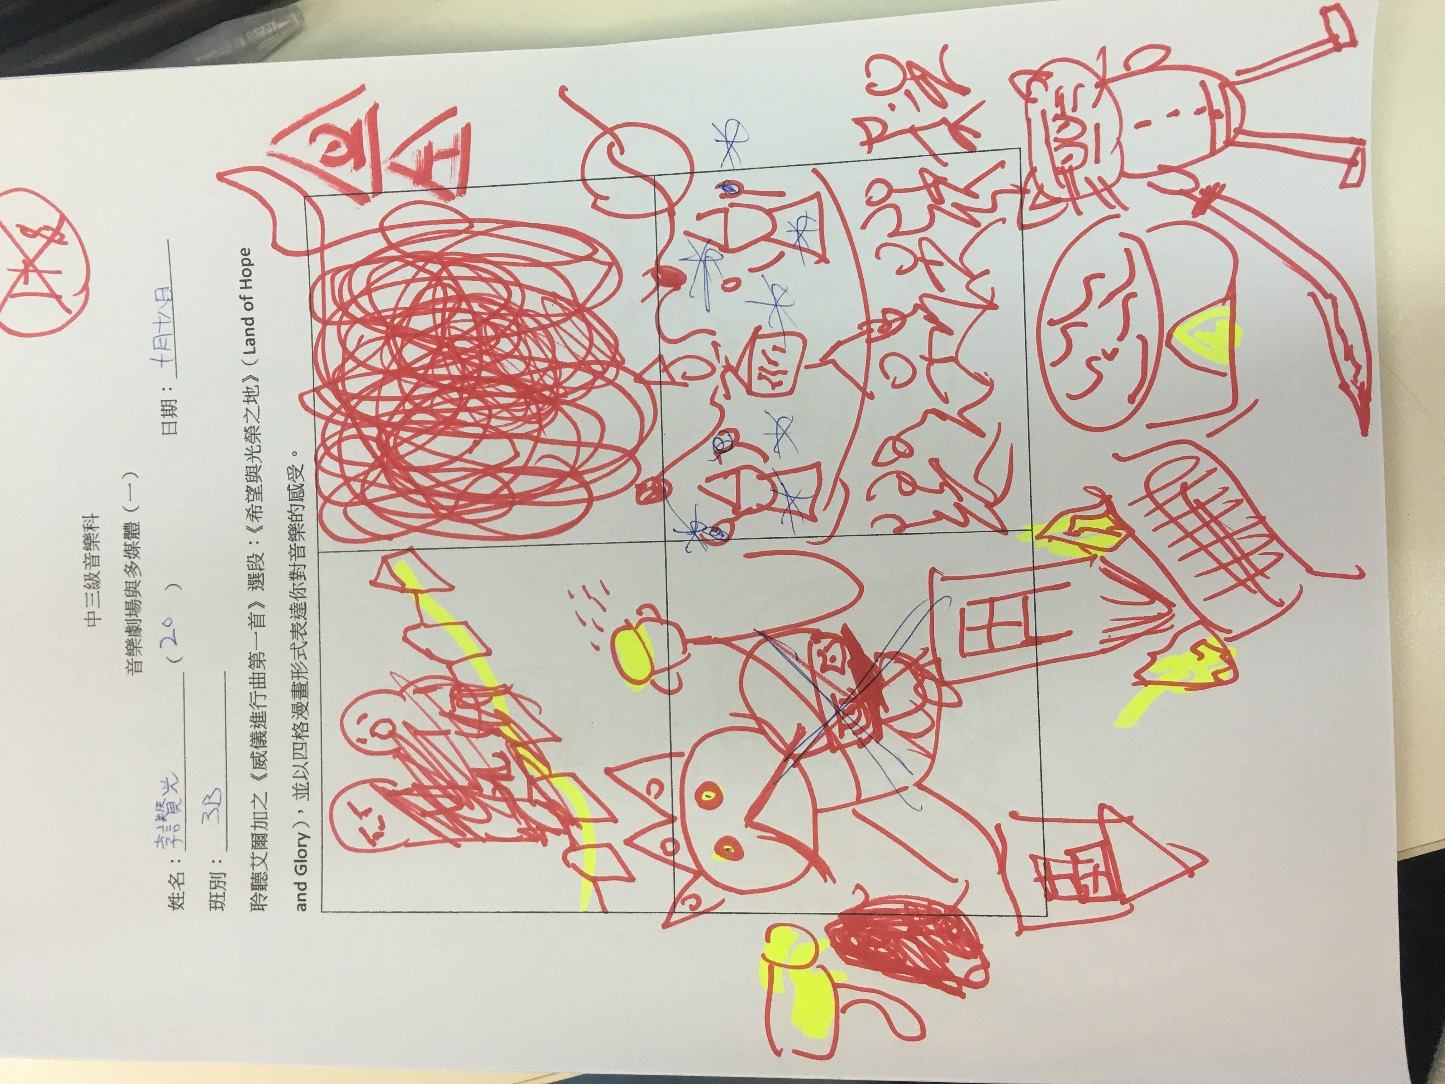 中三級音樂科
音樂劇場與多媒體（一）
姓名： （ 20 ） 日期：十月十八日
班別： 3B
聆聽艾爾加之《威儀進行曲第一首》選段：《希望與光榮之地》（Land of Hope
and Glory），並以四格漫畫形式表達你對音樂的感受。